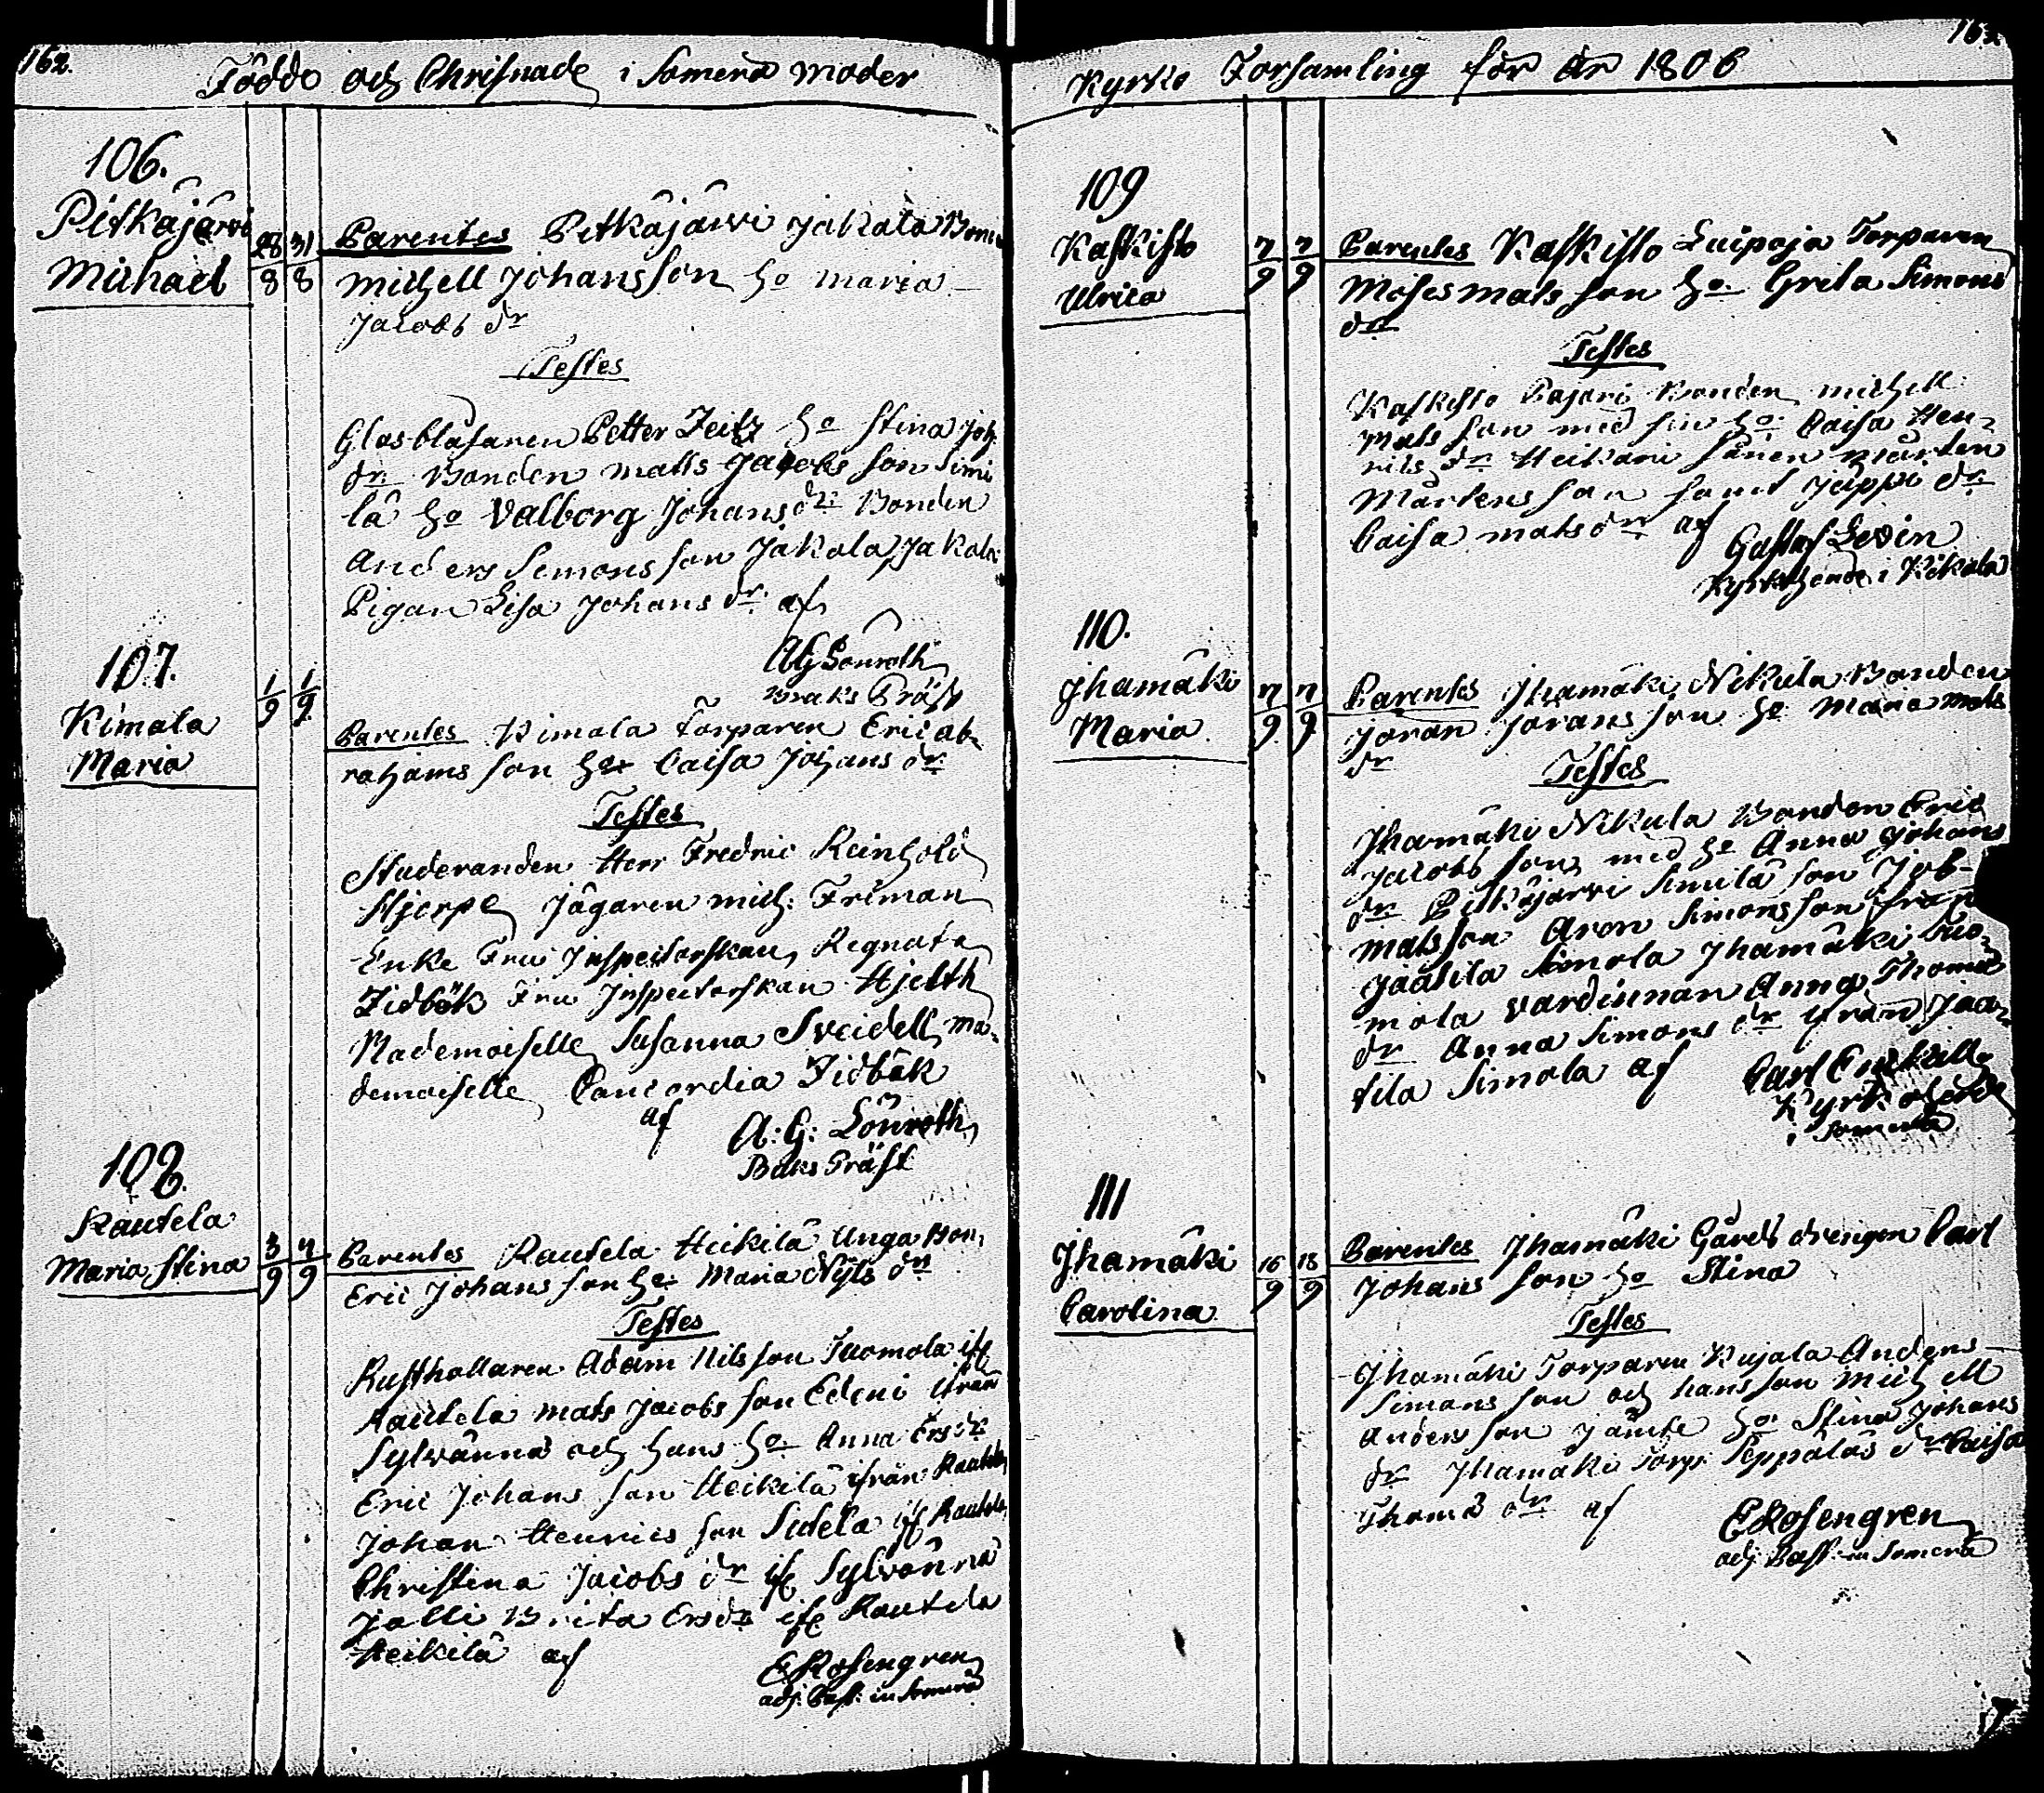 162.
Födde och Christnade i Somero moder
106.
Pitkäjärvi
Michael
28 31
8 8
Parentes Pitkäjärvi Jakala Bonden
Michell Johans Son Ho Maria
Jacobs dr
Testes
Glasblåsaren Petter Zeitz Ho Stina Joh.
dr Bonden Matts Jacobs Son Simi
lä Ho Valborg Johans dr Bonden
Anders Simons Son Jakala Jakala
Pigan Lisa Johans dr af
AG Lönroth
Bruks Präst
107.
Kimala
Maria
1 1
9 9
Parentes Kimala Torparen Eric Ab
rahams Son Ho Caisa Johans dr
Testes
Studeranden Herr Fredric Reinhold
Stjerpe Jägaren Mich: Friman
Enke Fru Inspectorskan Regnata
Zidbäk Fru Inspectorskan Hjelth
Mademoiselle Susanna Sveidell Ma
demoiselle Concordia Zidbäk
af A: G: Lönroth
Bruks Präst
108.
Rautela
Maria Stina
3 4
9 9
Parentes Rautela Heikilä Unga Bon.
Eric Johans Son Ho Maria Nils dr
Testes
Rusthollaren Adam Nils Son Tuomola if
Rautela Mats Jacobs Son Edeni ifrån
Sylvänna och hans Ho Anna Ers dr
Eric Johans Son Heikilä ifrån Rautela
Johan Henrics Son Sidela if Rautela
Christina Jacobs dr if Sylvänna
Jalli Brita Ersdr if Rautela
Heikilä af
E Rosengren
adj: Past: in Somero
163.
Kyrko Församling för år 1806
109
Kaskisto
Ulrica
7 7
9 9
Parentes Kaskisto Luipaja Torparen
Moses Mats Son Ho Greta Simons
dr
Testes
Kaskisto Pajari Bonden Michell
Mats Son med sin Ho Caisa Hen
rics dr Heikari Sonen Mårten
Mårtens Son samt Jäppi dr
Caisa Mats dr af Gustaf Levin
Kyrkoherde i Kikala
110.
Jhamäki
Maria
7 7
9 9
Parentes Jhamäki Nikula Bonden
Jöran Jörans Son Ho Maria Mats
dr
Testes
Jhamäki Nikula Bonden Eric
Jacobs Son med Ho Anna Johans
dr Pitkäjärvi Similä Son Job
Matsson Aron Simonsson från
Jaatila Simola Jhamäki Tuo
mola värdinnan Anna Thomas
dr Anna Simons dr ifrån Jaa
tila Simola af Carl Enckell
Kyrkoherde
i Somero
111
Jhamäki
Carolina
16 18
9 9
Parentes Jhamäki Gårds drengen Carl
Johans Son Ho Stina
Testes
Jhamäki Torparen Kujala Anders
Simons Son och hans Son Michell
Anders Son jämte Ho Stina Johans
dr Jhamäki Torp: Seppäläs dr Caisa
Thomas dr af
E Rosengren
adj: Past: in Somero